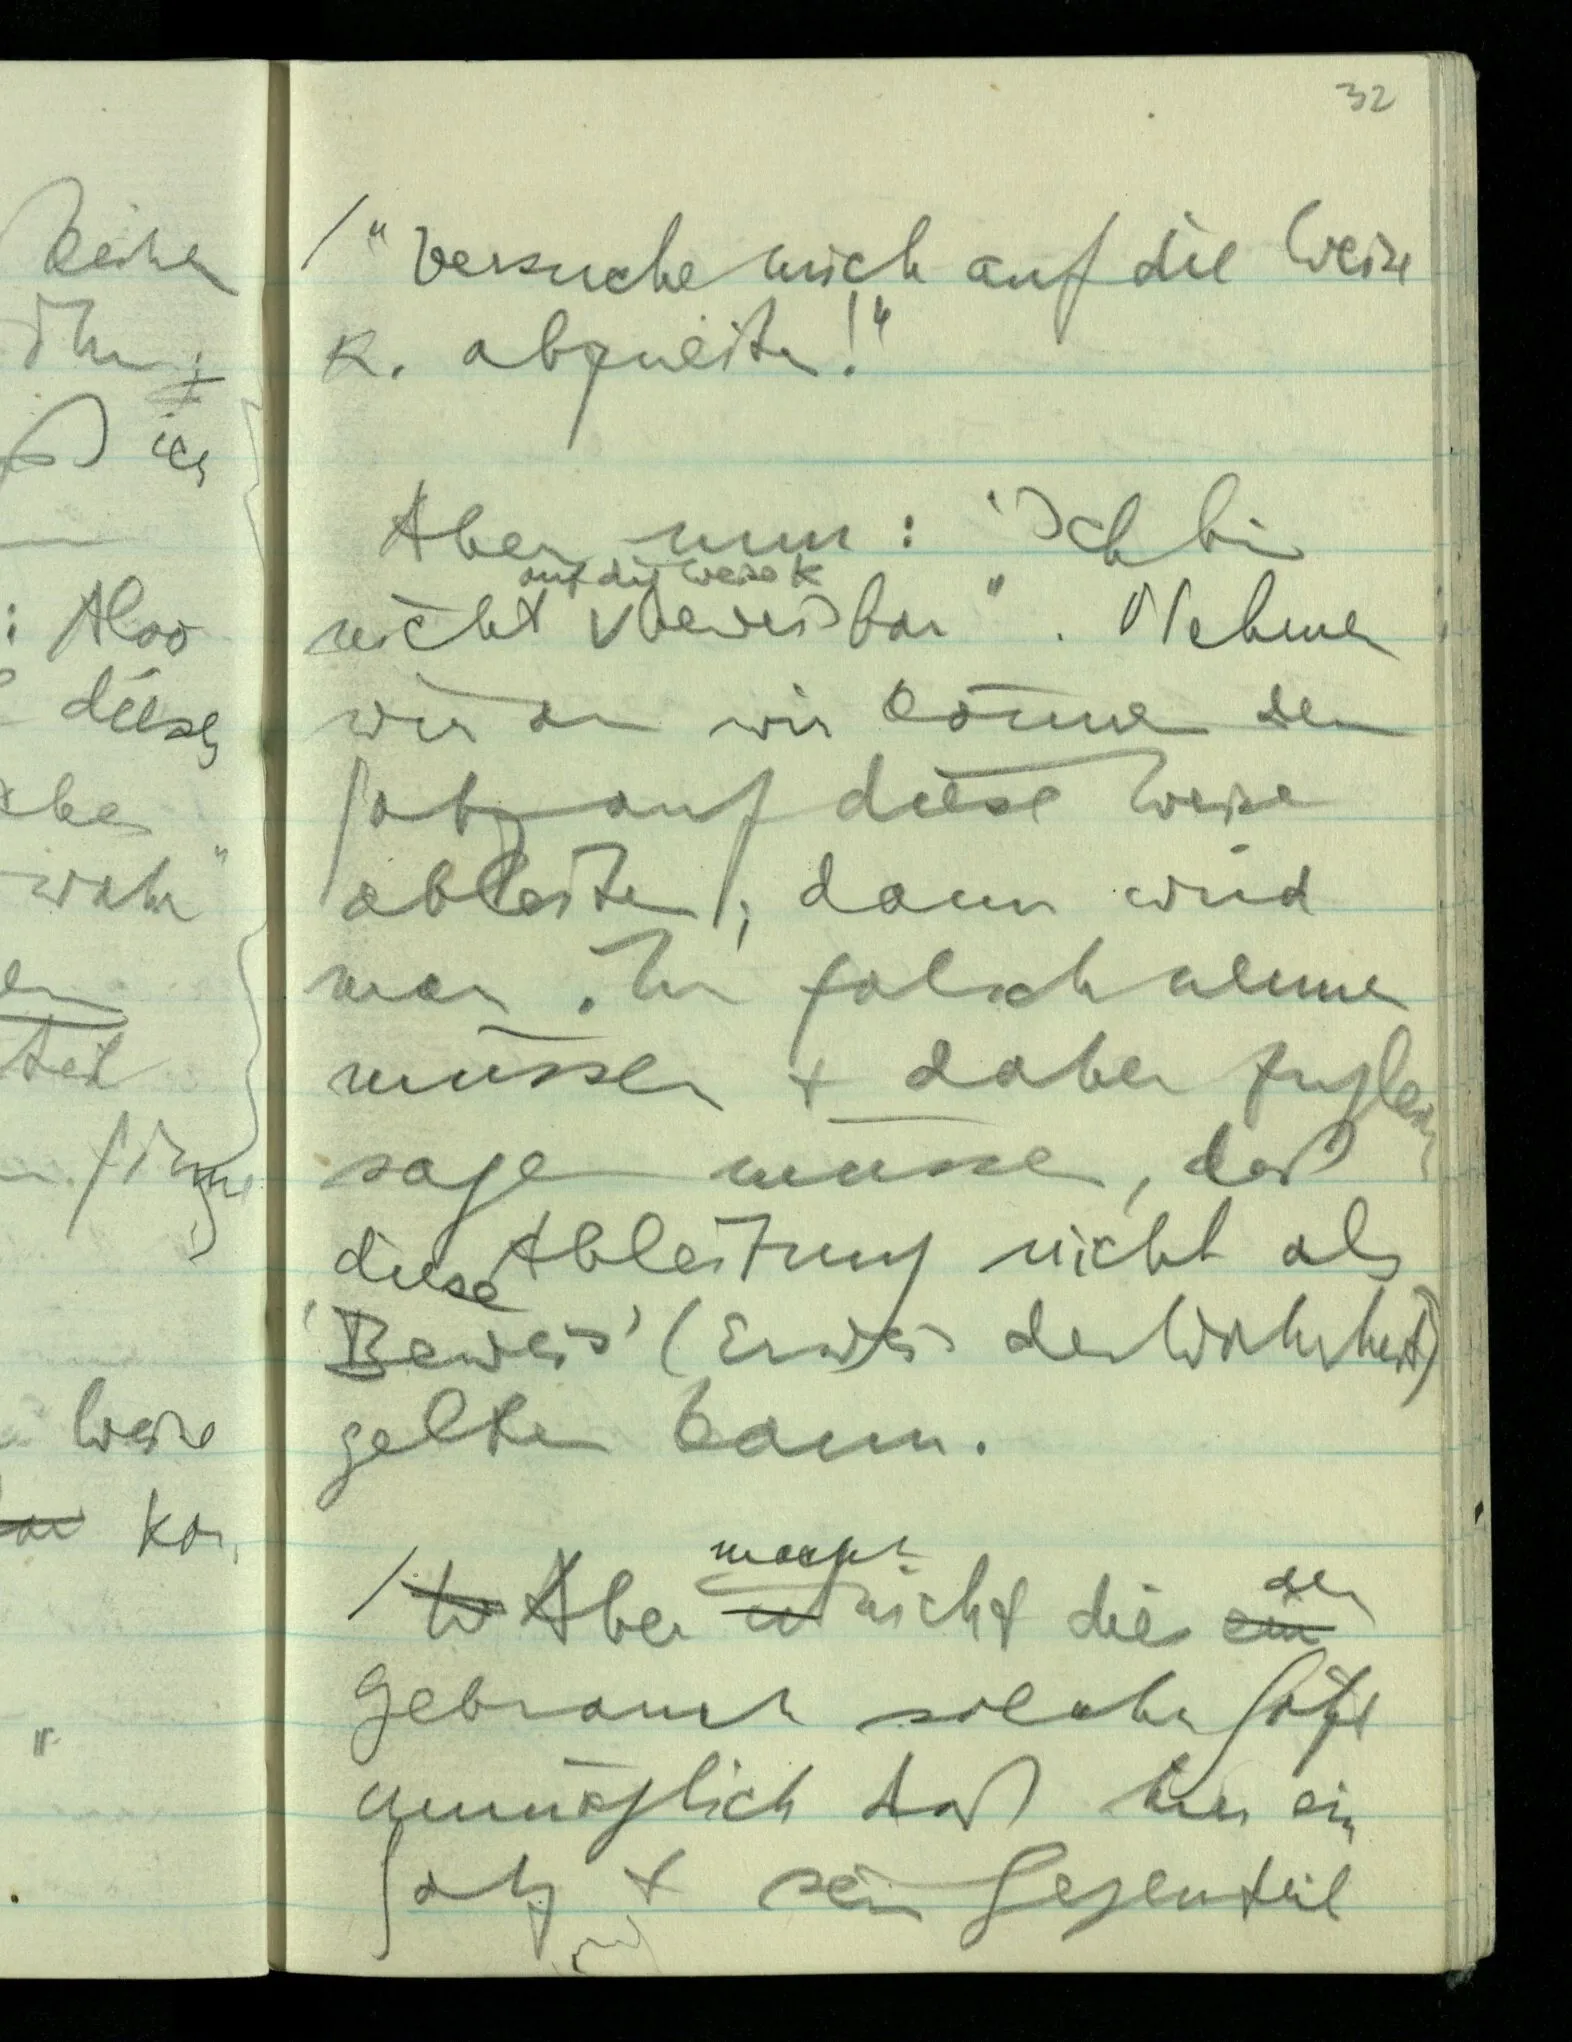 32
/ "Versuche mich auf die Weise
K. abzuleiten!"
Aber nun: "Ich bin
auf die Weise K
nicht beweisbar". Nehmen
wir an wir können den
Satz auf diese Weise
ableiten, dann wird
man ihn falsch nennen
müssen + daher zugleich
sagen müssen, daß
diese Ableitung nicht als
'Beweis' (Erweis der Wahrheit)
gelten kann.
macht den
/ W Aber u nicht dies ein
Gebrauch solcher Sätze
unmöglich daß hier ein
Satz + sein Gegenteil
keinen
ihn
ich
: Also
dieser
wahr"
Weise
"